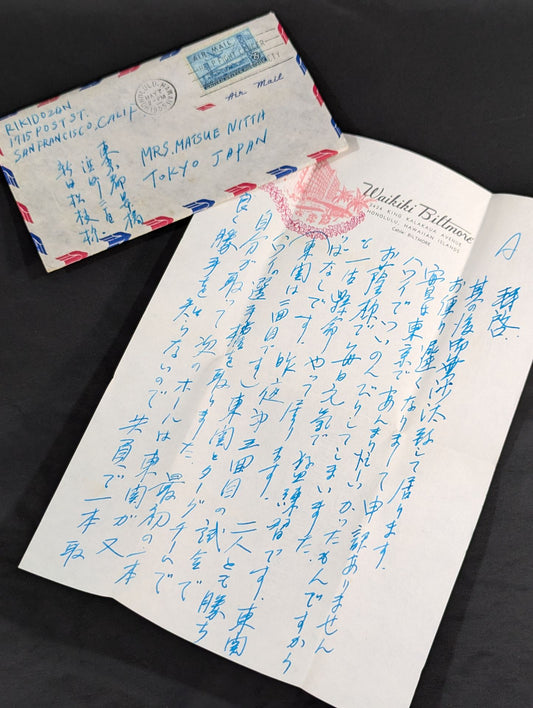 RIKIDOZAN
1715 POST ST.
SAN FRANCISCO, CALIF
AIR MAIL
HONOLULU, HAWAII
MAY
1955
Air Mail
MRS. MATSUE NITTA
TOKYO JAPAN
東京都
浜町二
新田松枝
Waikiki Biltmore
2424 KING KALAKAUA AVENUE
HONOLULU, HAWAIIAN ISLANDS
Cable: BILTMORE
A
拝啓
其の後御無沙汰致して居ります。
お便り遅くなりまして申訳ありません
実は東京であんまり忙しかったもんですから
ハワイでついのんびりしてしまいました。
お蔭様で毎日元気で 練習です。東関
と一生懸命やって居ります。二人とも勝ち
ぱなしです。昨夜 三回目の試合で
東関は二回目です 東関とタッグチームで
選手権を取りました。最初の一本
自分が取って次のホールには東関が又
良く勝手を知らないので 失負で一本取